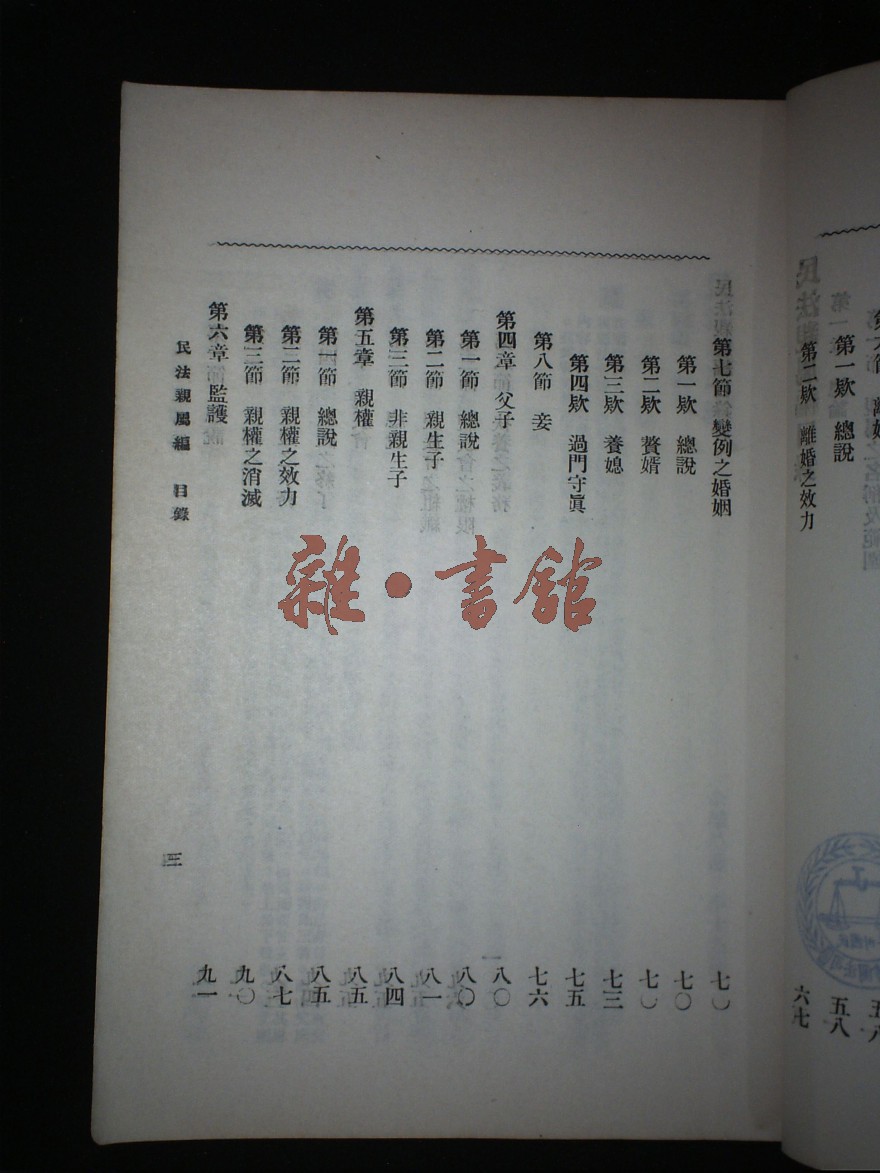 第一欵 總說 五八
第二欵 離婚之效力 六七
第七節 變例之婚姻 七〇
第一欵 總說 七〇
第二欵 贅婿 七〇
第三欵 養媳 七三
第四欵 過門守眞 七五
第八節 妾 七六
第四章 父子 八〇
第一節 總說 八〇
第二節 親生子 八一
第三節 非親生子 八四
第五章 親權 八五
第一節 總說 八五
第二節 親權之效力 八七
第三節 親權之消滅 九〇
第六章 監護 九一
民法親屬編 目錄 三
雜·書館